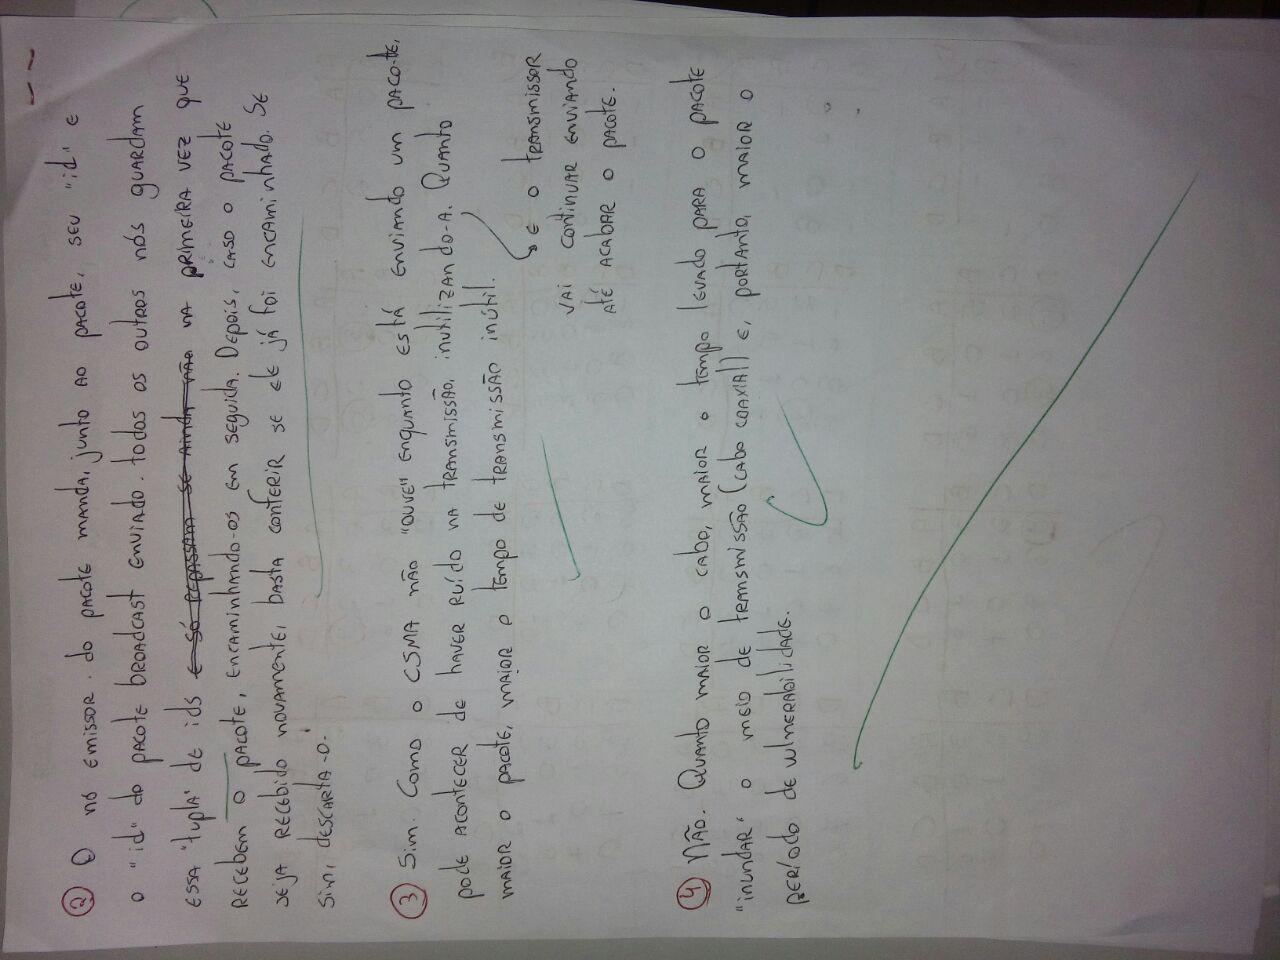 ② O nó emissor do pacote manda, junto ao pacote, seu "id" e
o "id" do pacote broadcast enviado. todos os outros nós guardam
essa "tupla" de ids e só repassam se ainda não na primeira vez que
recebem o pacote, encaminhando-os em seguida. Depois, caso o pacote
seja recebido novamente, basta conferir se ele já foi encaminhado. Se
sim, descarta-o.
③ Sim. Como o CSMA não "ouve" enquanto está enviando um pacote,
pode acontecer de haver ruído na transmissão, inutilizando-a. Quanto
maior o pacote, maior o tempo de transmissão inútil.
e o transmissor
vai continuar enviando
até acabar o pacote.
④ Não. Quanto maior o cabo, maior o tempo levado para o pacote
"inundar" o meio de transmissão (cabo coaxial) e, portanto, maior o
período de vulnerabilidade.